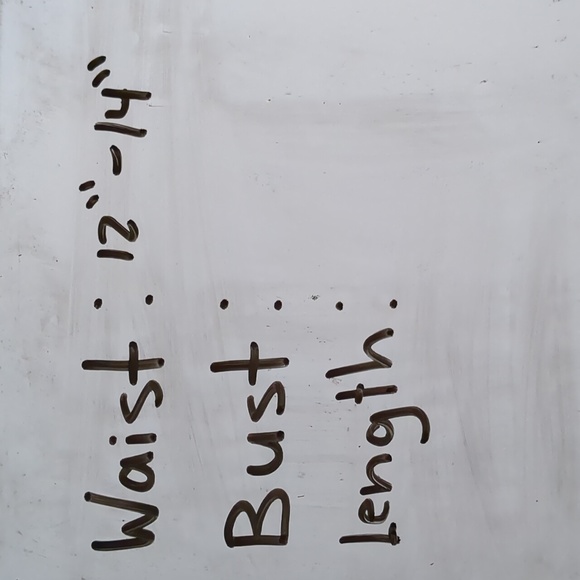 Waist : 12" - 14"
Bust :
Length :